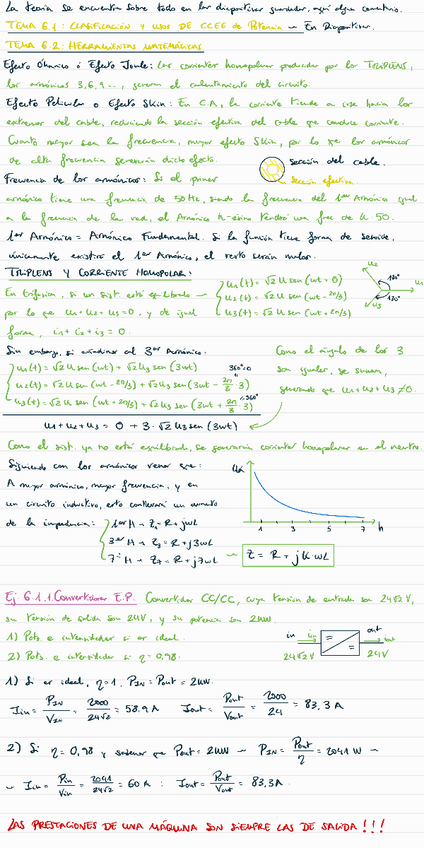 La teoría se encuentra sobre todo en las diapositivas guardadas, aquí algún comentario.
TEMA 6.1: CLASIFICACIÓN Y USOS DE CCEE de Potencia → En Diapositivas.
TEMA 6.2: HERRAMIENTAS MATEMÁTICAS
Efecto Óhmico ó Efecto Joule: Las corrientes homopolares producidas por los TRIPLENS,
los armónicos 3, 6, 9..., generan el calentamiento del circuito.
Efecto Pelicular o Efecto Skin: En C.A, la corriente tiende a irse hacia los
extremos del cable, reduciendo la sección efectiva del cable que conduce corriente.
Cuanto mayor sea la frecuencia, mayor efecto Skin, por lo que los armónicos
de alta frecuencia generarán dicho efecto.
sección del cable.
sección efectiva
Frecuencia de los armónicos: Si el primer
armónico tiene una frecuencia de 50Hz, siendo la frecuencia del 1er Armónico igual
a la frecuencia de la red, el Armónico k-ésimo tendrá una frec de k·50.
1er Armónico = Armónico Fundamental. Si la función tiene forma de senoide,
únicamente existirá el 1er Armónico, el resto serán nulos.
TRIPLENS Y CORRIENTE HOMOPOLAR:
En trifásica, si un sist. está equilibrado →
por lo que u1+u2+u3=0, y de igual
forma, i1+i2+i3=0.
u1(t) = √2 U sen(wt+0)
u2(t) = √2 U sen(wt-2π/3)
u3(t) = √2 U sen(wt+2π/3)
u2
120°
u1
120°
u3
Sin embargo, si añadimos el 3er Armónico.
u1(t) = √2 U sen(wt) + √2 U3 sen(3wt)
360°=0
u2(t) = √2 U sen(wt-2π/3) + √2 U3 sen(3wt - 2π/3 · 3)
u3(t) = √2 U sen(wt+2π/3) + √2 U3 sen(3wt + 2π/3 · 3)
=360°
u1+u2+u3 = 0 + 3·√2 U3 sen(3wt)
Como el ángulo de los 3
son iguales, se suman,
generando que u1+u2+u3≠0.
Como el sist. ya no está equilibrado, se generarán corrientes homopolares en el neutro.
Siguiendo con los armónicos vemos que:
A mayor armónico, mayor frecuencia, y en
un circuito inductivo, esto conllevará un aumento
de la impedancia:
1er H → Z1 = R+jwL
3er H → Z3 = R+j3wL
7º H → Z7 = R+j7wL
→ Z = R + jk·wL
1 3 5 7 h
Ej 6.1.1 Convertidores E.P. Convertidor CC/CC, cuya tensión de entrada son 24√2 V,
su tensión de salida son 24V, y su potencia son 2kW.
1) Pots e intensidades si es ideal.
2) Pots e intensidades si η=0,98.
in
iin
24√2 V
out
iout
24V
1) Si es ideal, η=1, PIN = Pout = 2kW.
Iin = PIN/VIN = 2000/24√2 = 58.9 A
Iout = Pout/Vout = 2000/24 = 83,3 A
2) Si η=0,98 y sabemos que Pout = 2kW → PIN = Pout/η = 2041 W →
→ Iin = Pin/Vin = 2041/24√2 = 60 A ; Iout = Pout/Vout = 83,3A.
¡LAS PRESTACIONES DE UNA MÁQUINA SON SIEMPRE LAS DE SALIDA!!!